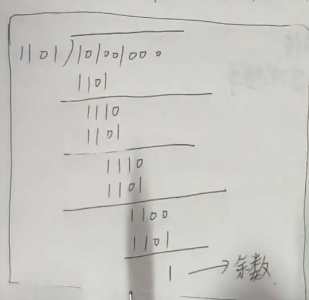 1101)101001000
1101
1110
1101
1110
1101
1100
1101
1 → 余数